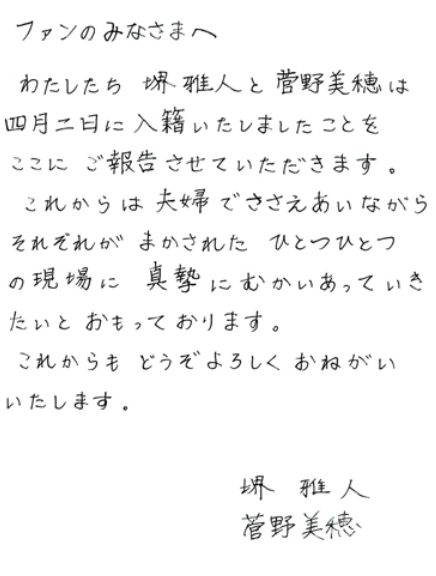 ファンのみなさまへ
わたしたち 堺 雅人と菅野美穂は
四月二日に入籍いたしましたことを
ここに ご報告させていただきます。
これからは夫婦でささえあいながら
それぞれが まかされた ひとつひとつ
の現場に 真摯にむかいあっていき
たいと おもっております。
これからも どうぞよろしくおねがい
いたします。
堺 雅人
菅野美穂